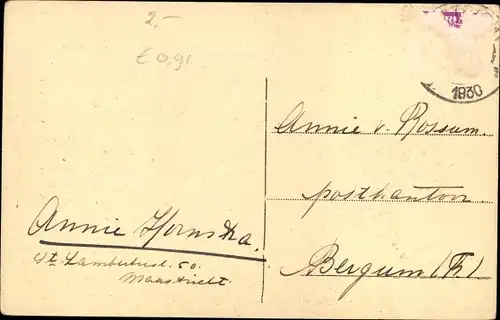 2,-
£ 0,91
1930
Annie v. Rossum.
postkantoor
Bergum (Fr.)
Annie
St. Lambertusl. 50.
Maastricht.